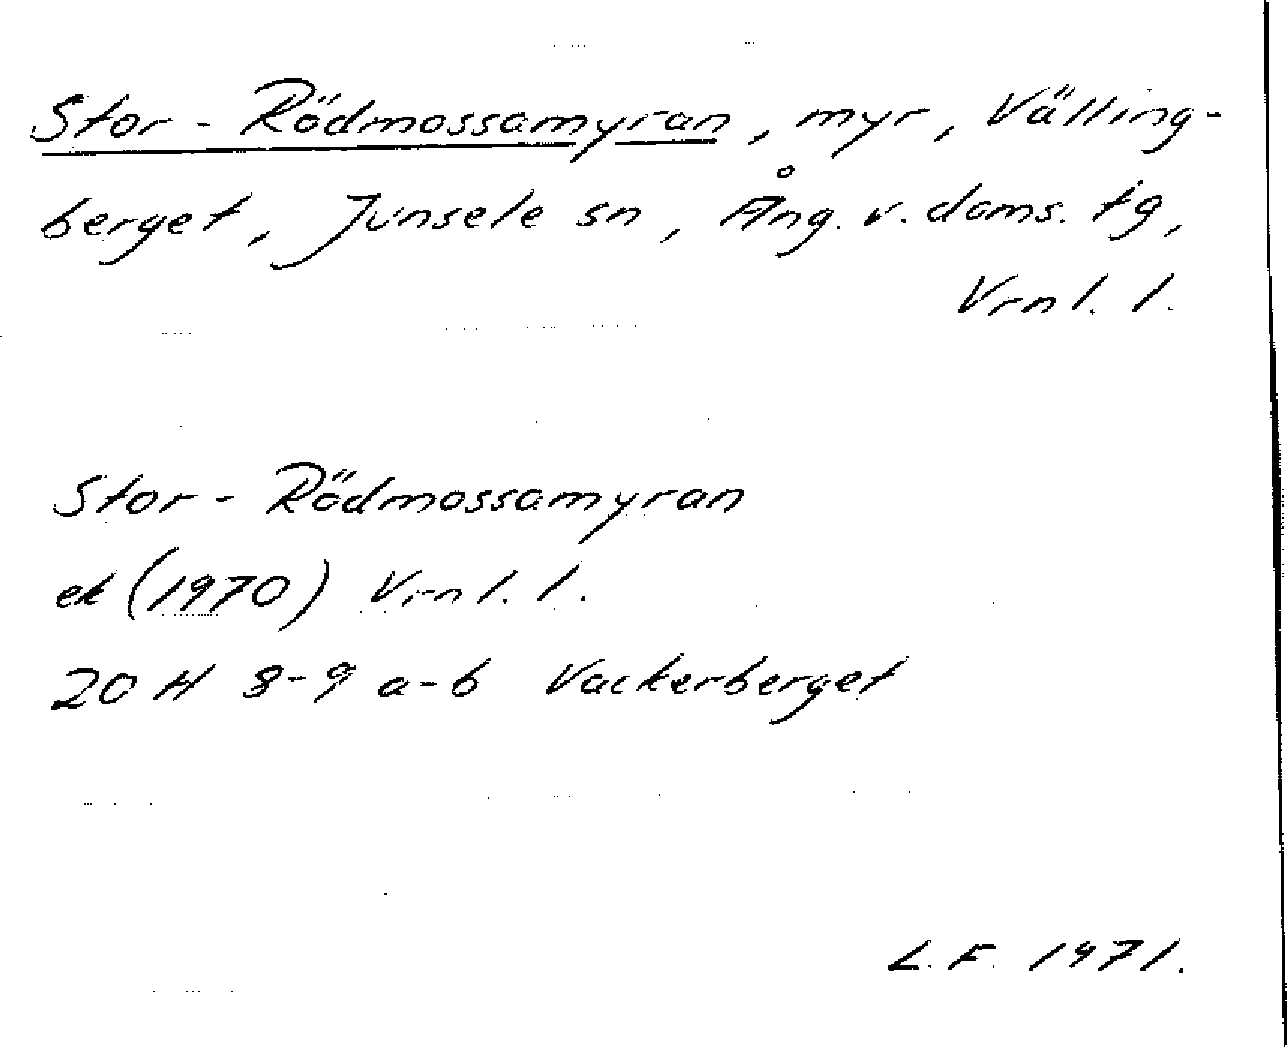 Stor - Rödmossamyran, myr, Välling-
berget, Junsele sn, Ång. v. doms. tg,
Vrnl. l.
Stor - Rödmossamyran
ek (1970) Vrnl. l.
20 H 8-9 a-b Vackerberget
L.F. 1971.